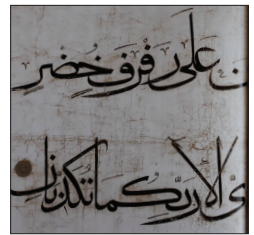 ن عَلَى رَفْرَفٍ خُضْرٍ
يِّ آلَاءِ رَبِّكُمَا تُكَذِّبَانِ